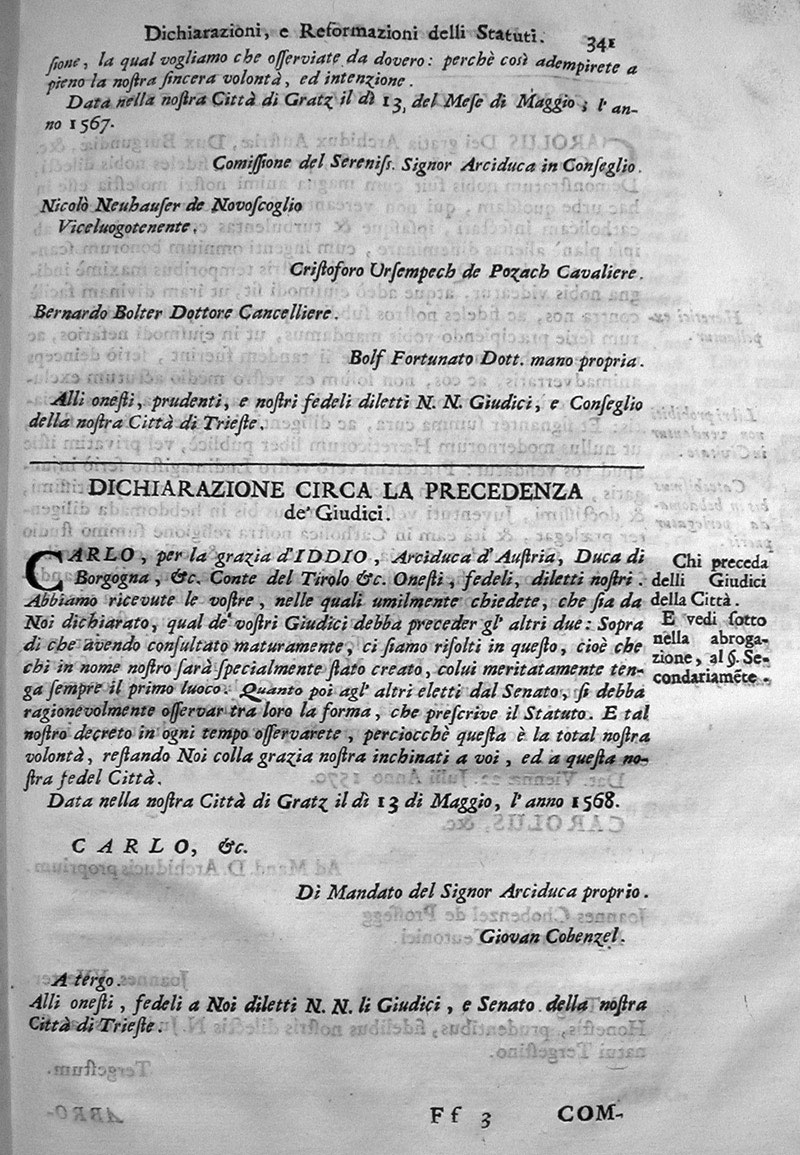 Dichiarazioni, e Reformazioni delli Statuti. 341
ſione, la qual vogliamo che oſſerviate da dovero: perchè così adempirete a
pieno la noſtra ſincera volontà, ed intenzione.
Data nella noſtra Città di Gratz il dì 13, del Meſe di Maggio; l'an-
no 1567.
Comiſſione del Sereniſs. Signor Arciduca in Conſeglio.
Nicolò Neuhauſer de Novoſcoglio
Viceluogotenente.
Criſtoforo Urſempech de Pozach Cavaliere.
Bernardo Bolter Dottore Cancelliere.
Bolf Fortunato Dott. mano propria.
Alli oneſti, prudenti, e noſtri fedeli diletti N. N. Giudici, e Conſeglio
della noſtra Città di Trieſte.
DICHIARAZIONE CIRCA LA PRECEDENZA
de' Giudici.
CARLO, per la grazia d'IDDIO, Arciduca d'Auſtria, Duca di
Borgogna, &c. Conte del Tirolo &c. Oneſti, fedeli, diletti noſtri.
Abbiamo ricevute le voſtre, nelle quali umilmente chiedete, che ſia da
Noi dichiarato, qual de' voſtri Giudici debba preceder gl' altri due: Sopra
di che avendo conſultato maturamente, ci ſiamo riſolti in queſto, cioè che
chi in nome noſtro ſarà ſpecialmente ſtato creato, colui meritatamente ten-
ga ſempre il primo luoco. Quanto poi agl' altri eletti dal Senato, ſi debba
ragionevolmente oſſervar tra loro la forma, che preſcrive il Statuto. E tal
noſtro decreto in ogni tempo oſſervarete, perciocchè queſta è la total noſtra
volontà, reſtando Noi colla grazia noſtra inchinati a voi, ed a queſta no-
ſtra fedel Città.
Data nella noſtra Città di Gratz il dì 13 di Maggio, l'anno 1568.
Chi preceda
delli Giudici
della Città.
E vedi ſotto
nella abroga-
zione, al §. Se-
condariamẽte.
CARLO, &c.
Di Mandato del Signor Arciduca proprio.
Giovan Cobenzel.
A tergo.
Alli oneſti, fedeli a Noi diletti N. N. li Giudici, e Senato della noſtra
Città di Trieſte.
Ff 3 COM-